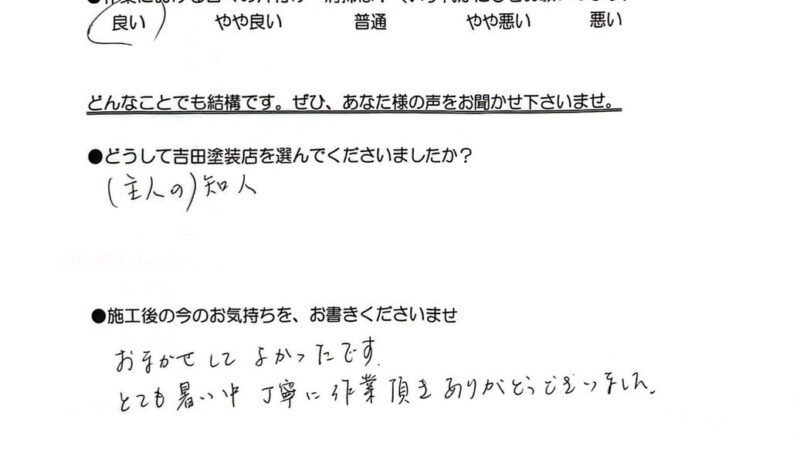 良い やや良い 普通 やや悪い 悪い
どんなことでも結構です。ぜひ、あなた様の声をお聞かせ下さいませ。
●どうして吉田塗装店を選んでくださいましたか？
(主人の)知人
●施工後の今のお気持ちを、お書きくださいませ
おまかせして よかったです.
とても暑い中 丁寧に作業頂きありがとうございました.